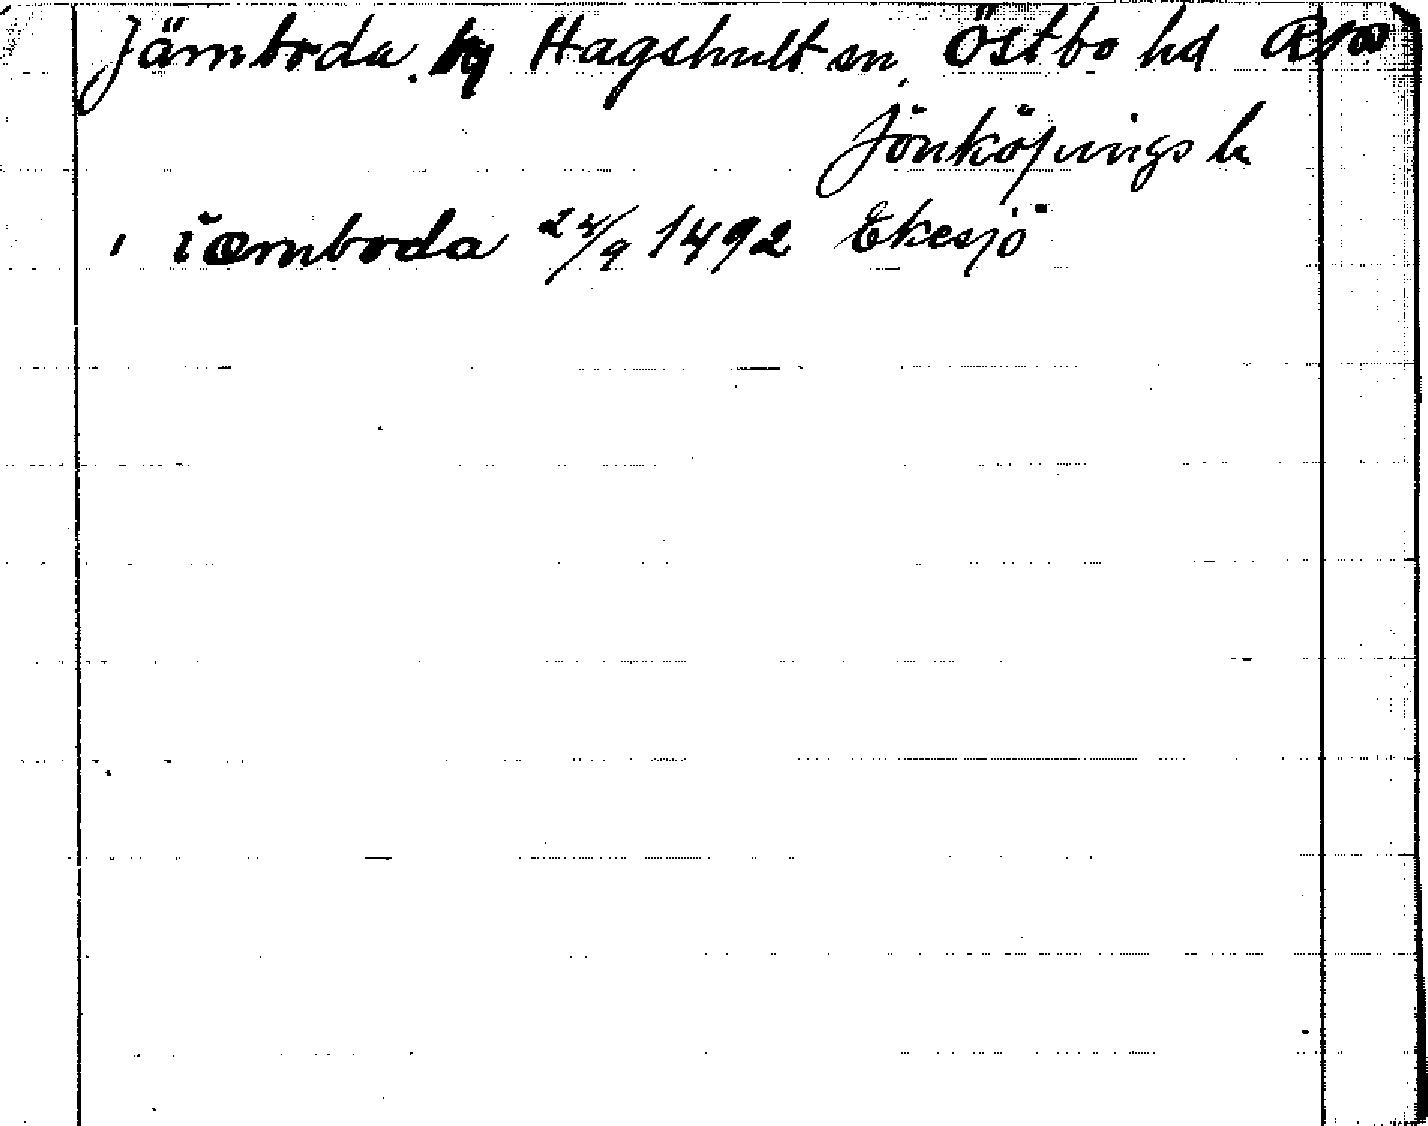 Jämboda. Hagshult sn, Östbo hd
Jönköpings l
, iæmboda 22/9 1492 Ekesjö